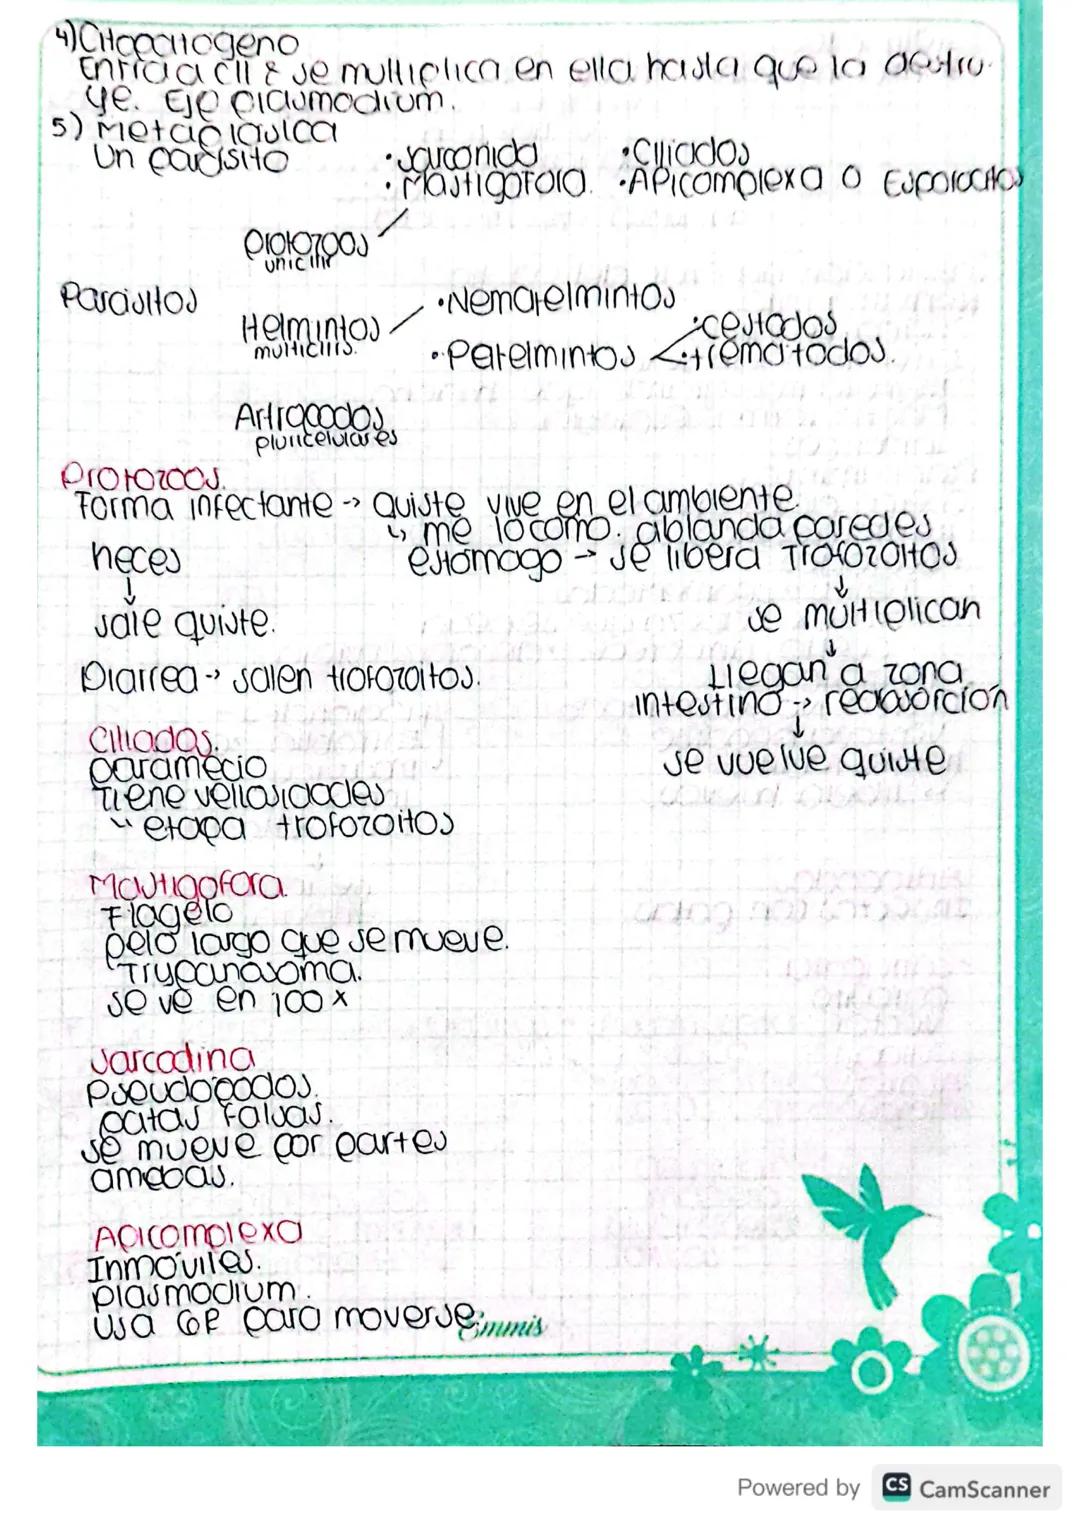 4) Citopatogeno
Entra a cll & se multiplica en ella hasta que la destru-
ye. Eje plasmodium.
5) Metaplasica
Un parásito
•Sarconida •Ciliados
•Mastigofora. •Apicomplexa o Esporocitos
Protozoos
unicllr
Parasitos
•Nematelmintos
Helmintos •cestados
multicllrs. •Patelmintos •trematodos.
Artropodos
pluricelulares
Protozoos.
Forma infectante → Quiste vive en el ambiente.
↳ me lo como. ablanda paredes
heces estómago → se libera Trofozoitos
↓ ↓
sale quiste. se multiplican
↓
Diarrea → salen trofozoitos. Llegan a zona
intestino → reabsorcion
↓
Ciliados. se vuelve quiste
paramecio
Tiene vellosidades
↳ etapa trofozoitos
Mastigofora
Flagelo
pelo largo que se mueve.
Trypanosoma.
se ve en 100x
Sarcodina
Pseudopodos.
patas falsas.
se mueve por partes
amebas.
Apicomplexa
Inmóviles.
plasmodium.
Usa GR para moverse.
Emmis
Powered by CS CamScanner